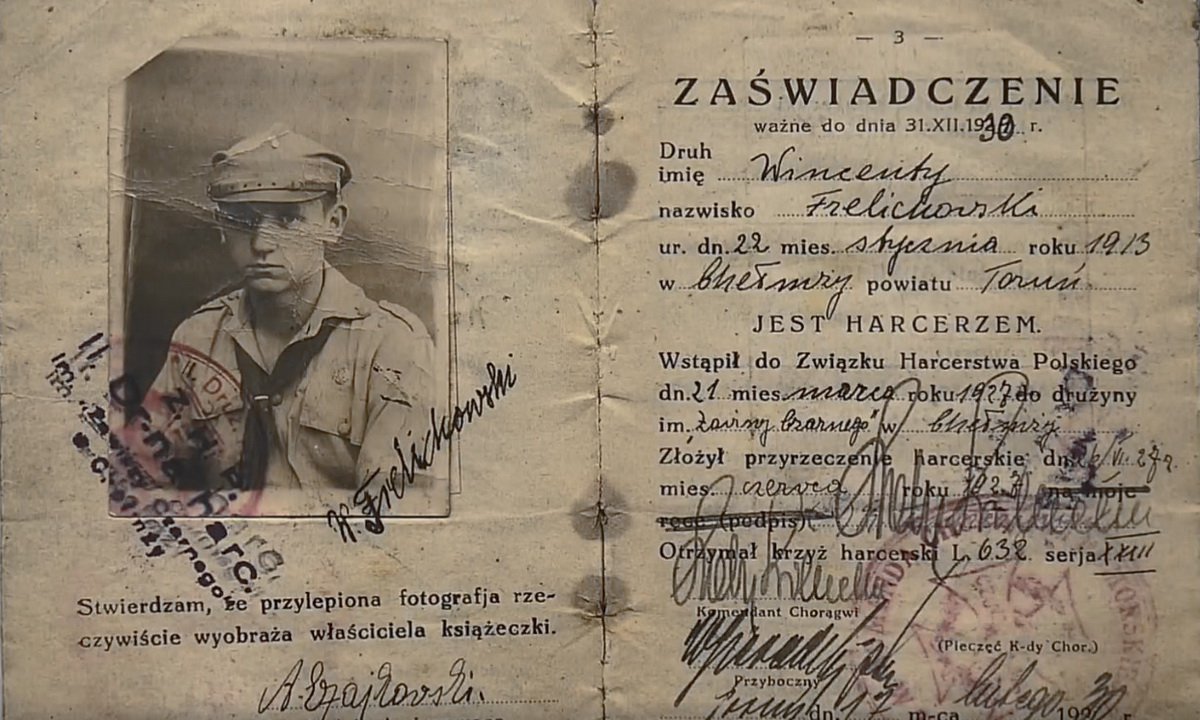 W. Frelichowski
Stwierdzam, że przylepiona fotografja rze-
czywiście wyobraża właściciela książeczki.
A. Czajkowski.
— 3 —
ZAŚWIADCZENIE
ważne do dnia 31.XII.1930 r.
Druh
imię Wincenty
nazwisko Frelichowski
ur. dn. 22 mies. stycznia roku 1913
w Chełmży powiatu Toruń
JEST HARCERZEM.
Wstąpił do Związku Harcerstwa Polskiego
dn. 21 mies. marca roku 1927 do drużyny
im. Zawiszy Czarnego" w Chełmży
Złożył przyrzeczenie harcerskie dn. 26/VI 27 r.
mies. czerwca roku 1927 na moje
ręce (podpis)
Otrzymał krzyż harcerski L. 632 serja XXIII
Komendant Chorągwi
(Pieczęć K-dy Chor.)
Przyboczny
Toruń dn. 12 m-ca lutego 1930